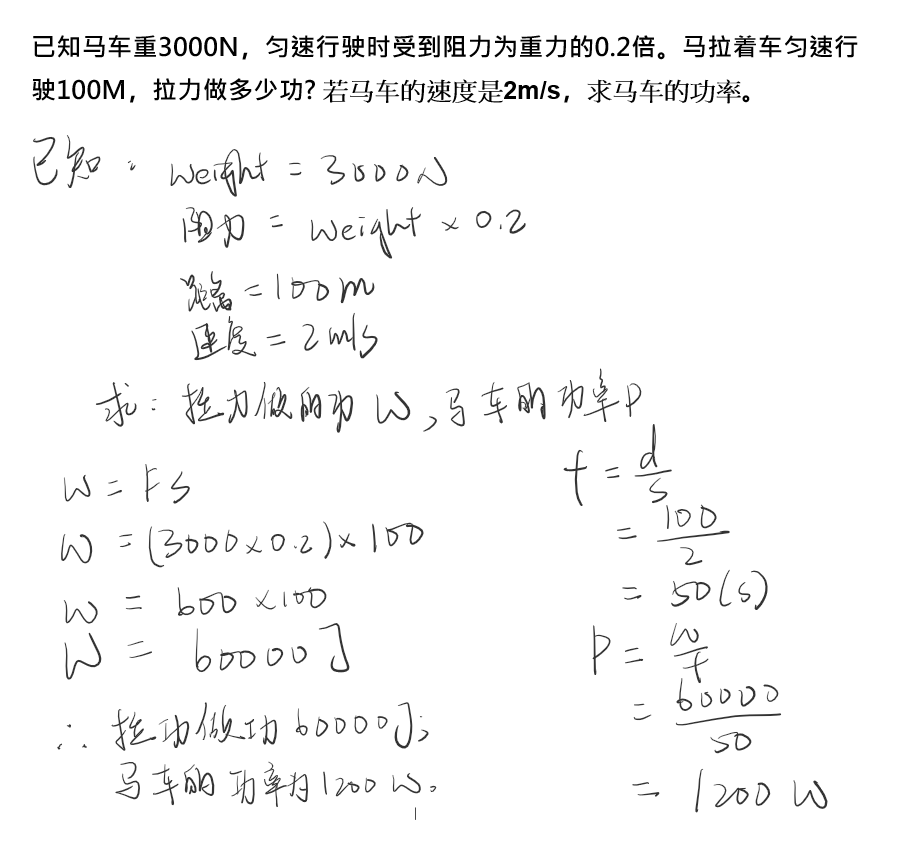 已知马车重3000N，匀速行驶时受到阻力为重力的0.2倍。马拉着车匀速行
驶100M，拉力做多少功? 若马车的速度是2m/s，求马车的功率。
已知： weight = 3000N
阻力 = weight × 0.2
距离 = 100m
速度 = 2m/s
求：拉力做的功W,马车的功率P
W = FS
W = (3000×0.2)×100
W = 600×100
W = 60000J
∴ 拉功做功60000J;
马车的功率为1200W。
t = d/s
= 100/2
= 50(s)
P = W/t
= 60000/50
= 1200W